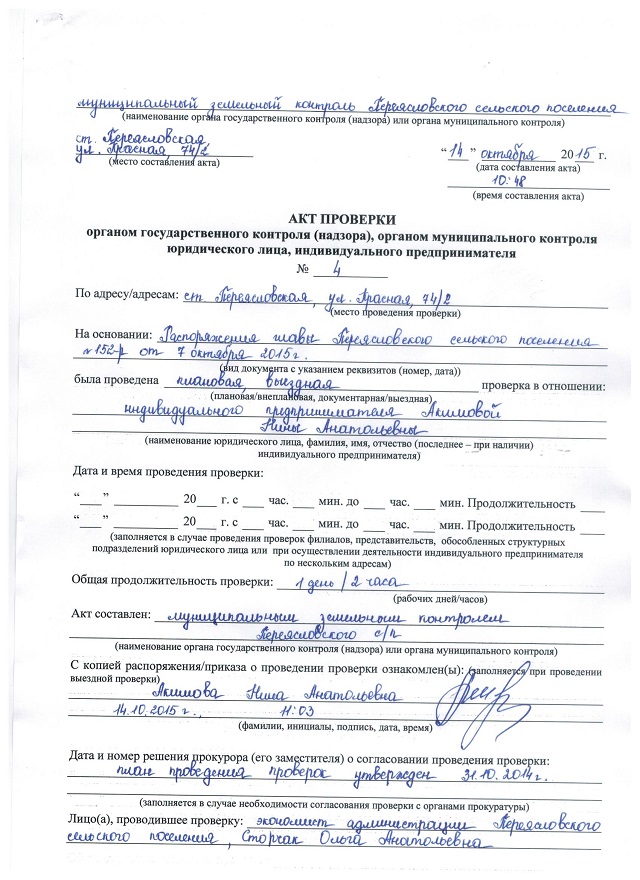 муниципальный земельный контроль Переясловского сельского поселения
(наименование органа государственного контроля (надзора) или органа муниципального контроля)
ст. Переясловская,
ул. Красная, 74/2
(место составления акта)
“ 14 ” октября 20 15 г.
(дата составления акта)
10:48
(время составления акта)
АКТ ПРОВЕРКИ
органом государственного контроля (надзора), органом муниципального контроля
юридического лица, индивидуального предпринимателя
№ 4
По адресу/адресам: ст. Переясловская, ул. Красная, 74/2
(место проведения проверки)
На основании: Распоряжения главы Переясловского сельского поселения
№152-р от 7 октября 2015г.
(вид документа с указанием реквизитов (номер, дата))
была проведена плановая, выездная проверка в отношении:
(плановая/внеплановая, документарная/выездная)
индивидуального предпринимателя Акимовой
Нины Анатольевны
(наименование юридического лица, фамилия, имя, отчество (последнее – при наличии)
индивидуального предпринимателя)
Дата и время проведения проверки:
“___” __________ 20___ г. с ___ час. ___ мин. до ___ час. ___ мин. Продолжительность ____
“___” __________ 20___ г. с ___ час. ___ мин. до ___ час. ___ мин. Продолжительность ____
(заполняется в случае проведения проверок филиалов, представительств, обособленных структурных
подразделений юридического лица или при осуществлении деятельности индивидуального предпринимателя
по нескольким адресам)
Общая продолжительность проверки: 1 день / 2 часа
(рабочих дней/часов)
Акт составлен: муниципальным земельным контролем
Переясловского с/п
(наименование органа государственного контроля (надзора) или органа муниципального контроля)
С копией распоряжения/приказа о проведении проверки ознакомлен(ы): (заполняется при проведении
выездной проверки)
Акимова Нина Анатольевна
14.10.2015 г., 11:03
(фамилии, инициалы, подпись, дата, время)
Дата и номер решения прокурора (его заместителя) о согласовании проведения проверки:
план проведения проверок утвержден 31.10.2014г.
(заполняется в случае необходимости согласования проверки с органами прокуратуры)
Лицо(а), проводившее проверку: экономист администрации Переясловского
сельского поселения, Сторчак Ольга Анатольевна